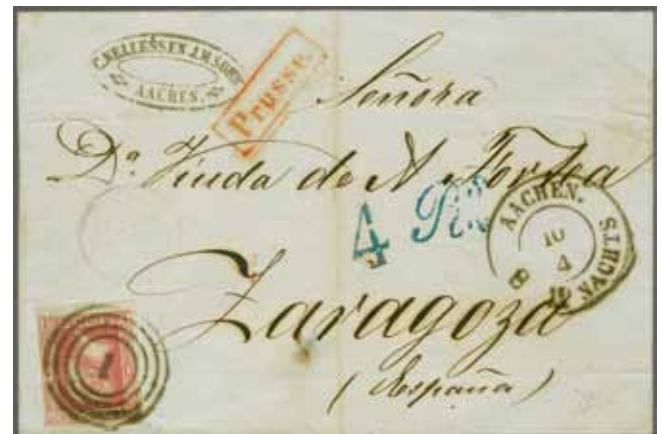 C. NELLESSEN J.M. SOHN
AACHEN.
Prusse.
Señora
Dª Viuda de N
4 Rs
AACHEN.
10
4
8
NACHTS
Zaragoza
(España)
1